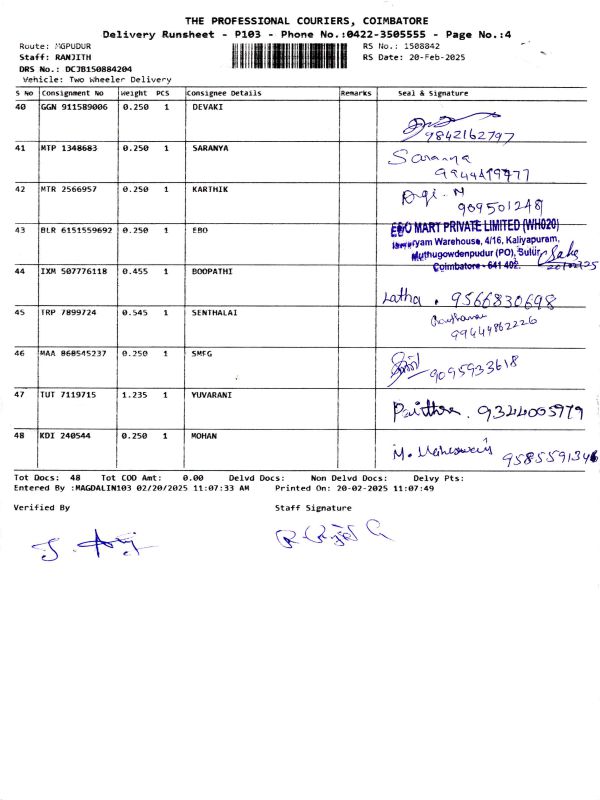 THE PROFESSIONAL COURIERS, COIMBATORE
Delivery Runsheet - P103 - Phone No.:0422-3505555 - Page No.:4
Route: MGPUDUR RS No.: 1508842
Staff: RANJITH RS Date: 20-Feb-2025
DRS No.: DCJB150884204
Vehicle: Two Wheeler Delivery
S No Consignment No Weight PCS Consignee Details Remarks Seal & Signature
40 GGN 911589006 0.250 1 DEVAKI
9842162797
41 MTP 1348683 0.250 1 SARANYA Saranya
42 MTR 2566957 0.250 1 KARTHIK
909501248
43 BLR 6151559692 0.250 1 EBO EBO MART PRIVATE LIMITED (WH020)
Warehouse, 4/16, Kaliyapuram,
Muthugowdenpudur (PO), Sulur,
Coimbatore - 641 402.
44 IXM 507776118 0.455 1 BOOPATHI
Latha. 9566830698
45 TRP 7899724 0.545 1 SENTHALAI
99444862226
46 MAA 860545237 0.250 1 SMFG
9095933618
47 TUT 7119715 1.235 1 YUVARANI
9344005979
48 KDI 240544 0.250 1 MOHAN
9585591346
Tot Docs: 48 Tot COD Amt: 0.00 Delvd Docs: Non Delvd Docs: Delvy Pts:
Entered By :MAGDALIN103 02/20/2025 11:07:33 AM Printed On: 20-02-2025 11:07:49
Verified By Staff Signature